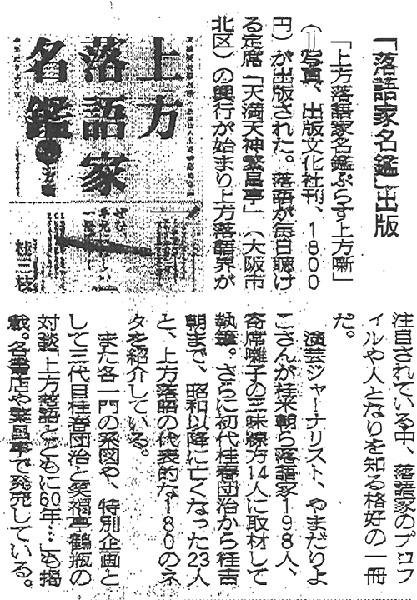 「落語家名鑑」出版
「上方落語家名鑑ぷらす上方噺」
(＝写真、出版文化社刊、1800
円)が出版された。落語が毎日聴け
る定席「天満天神繁昌亭」(大阪市
北区)の興行が始まり上方落語界が
上方
落語家
名鑑
桂三枝
注目されている中、落語家のプロフ
ィルや人となりを知る格好の一冊
だ。
演芸ジャーナリスト、やまだりよ
こさんが桂米朝ら落語家198人、
寄席囃子の三味線方14人に取材して
執筆。さらに初代桂春団治から桂吉
朝まで、昭和以降に亡くなった23人
と、上方落語の代表的な180のネ
タを紹介している。
また各一門の系図や、特別企画と
して三代目桂春団治と笑福亭鶴瓶の
対談「上方落語とともに60年…」も掲
載。各書店や繁昌亭で発売している。